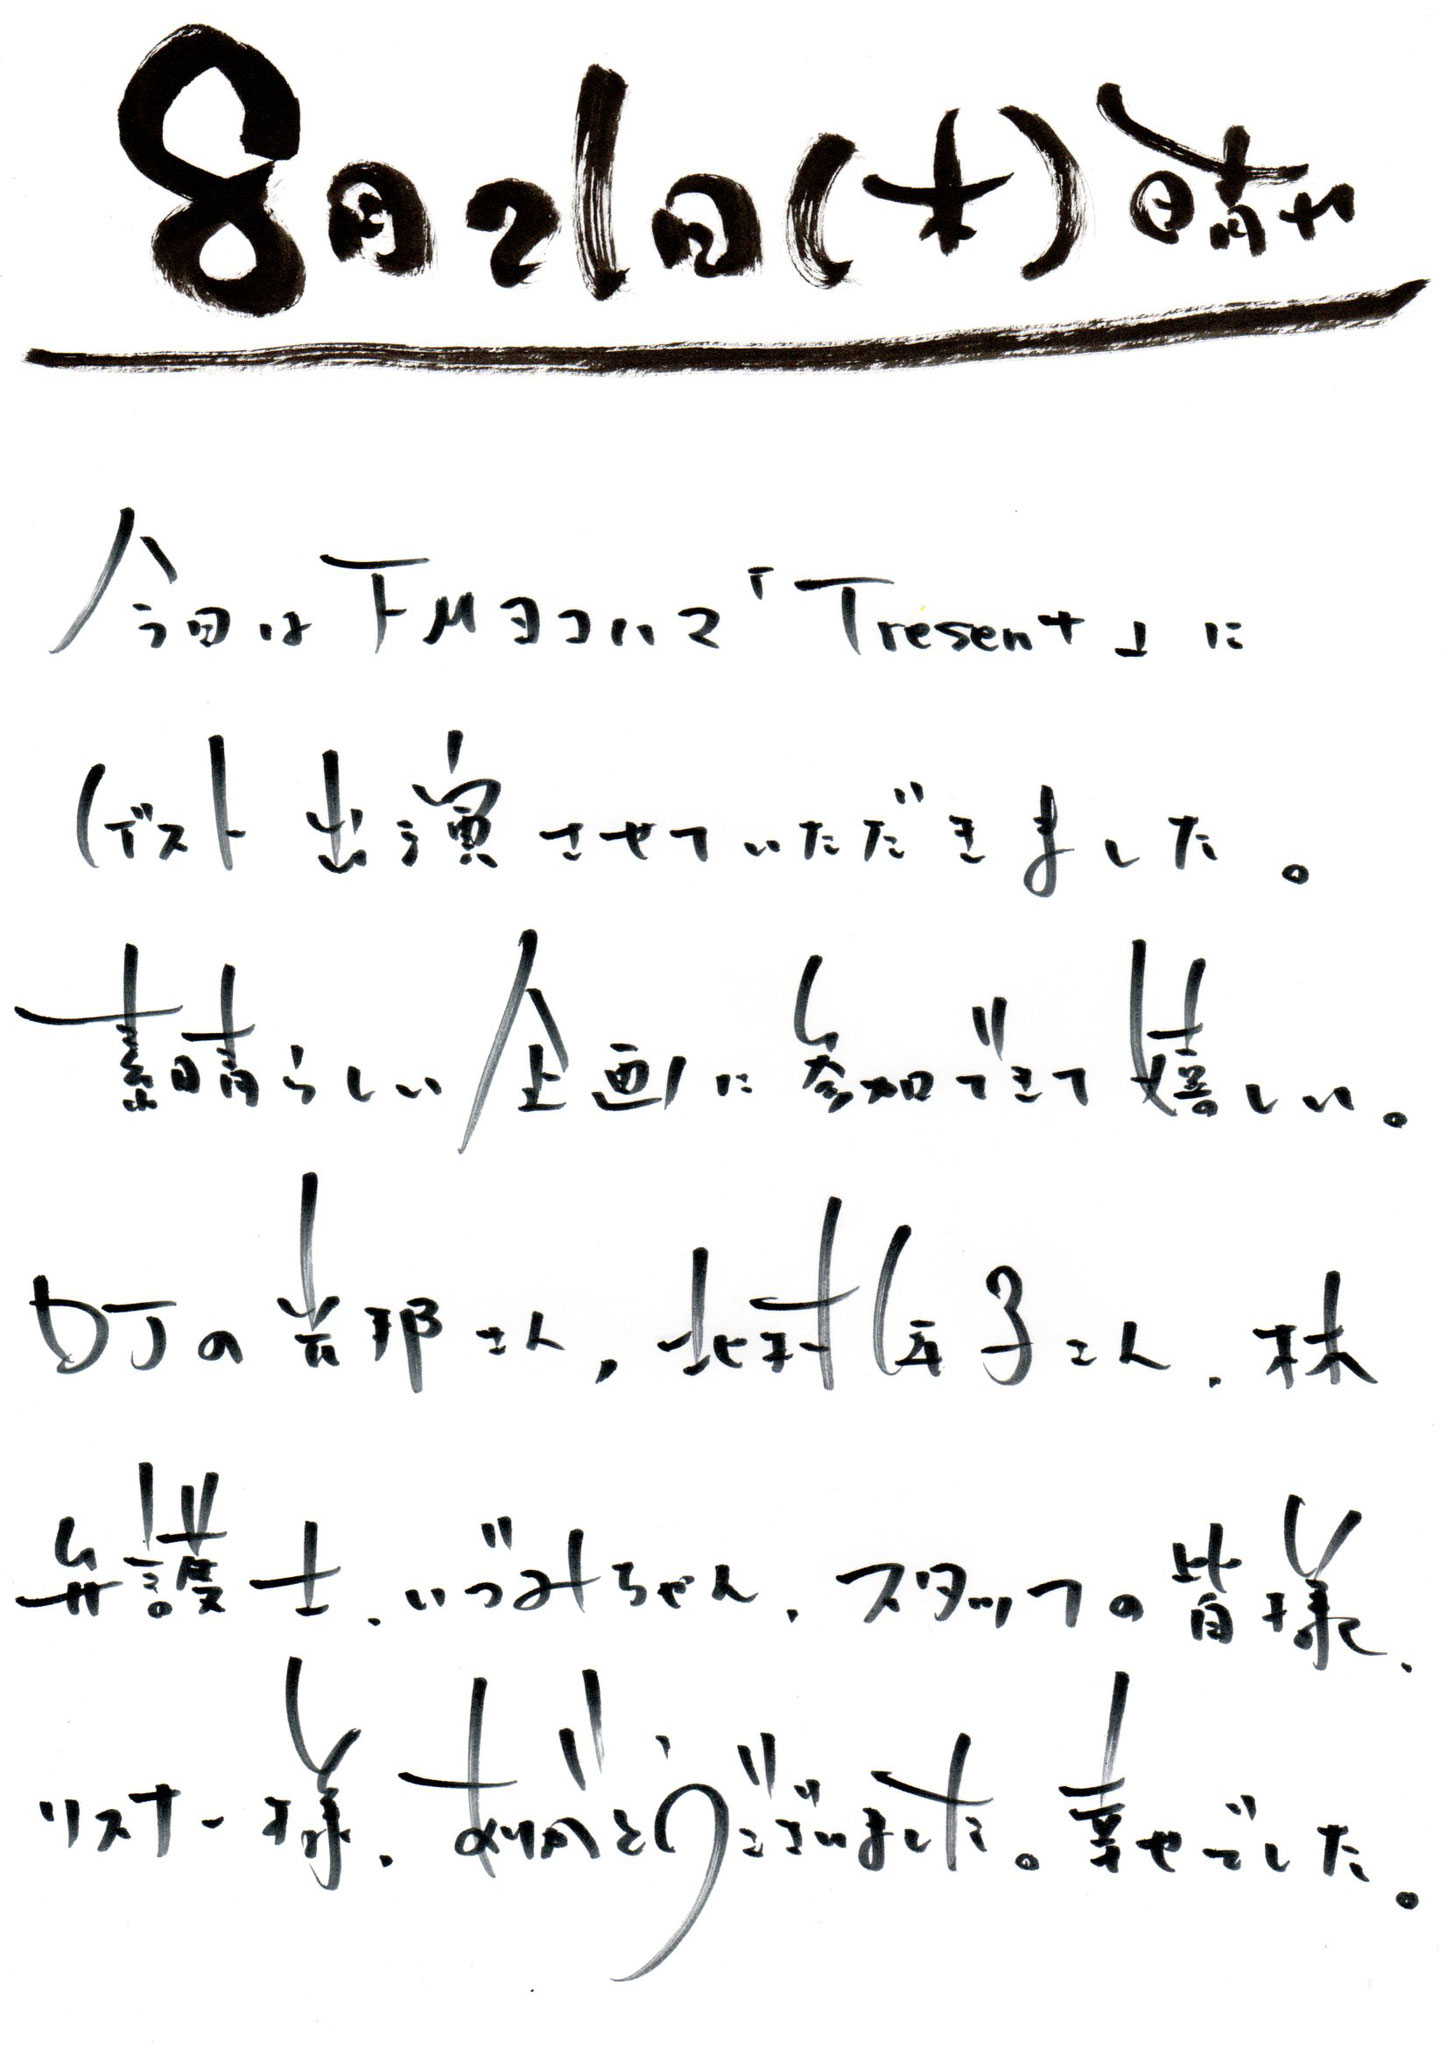 8月21日(木)晴れ
今日はFMヨコハマ「Tresen+」に
ゲスト出演させていただきました。
素晴らしい企画に参加できて嬉しい。
DJの光邦さん、北村信子さん、林
弁護士、いづみちゃん、スタッフの皆様、
リスナー様、ありがとうございました。幸せでした。